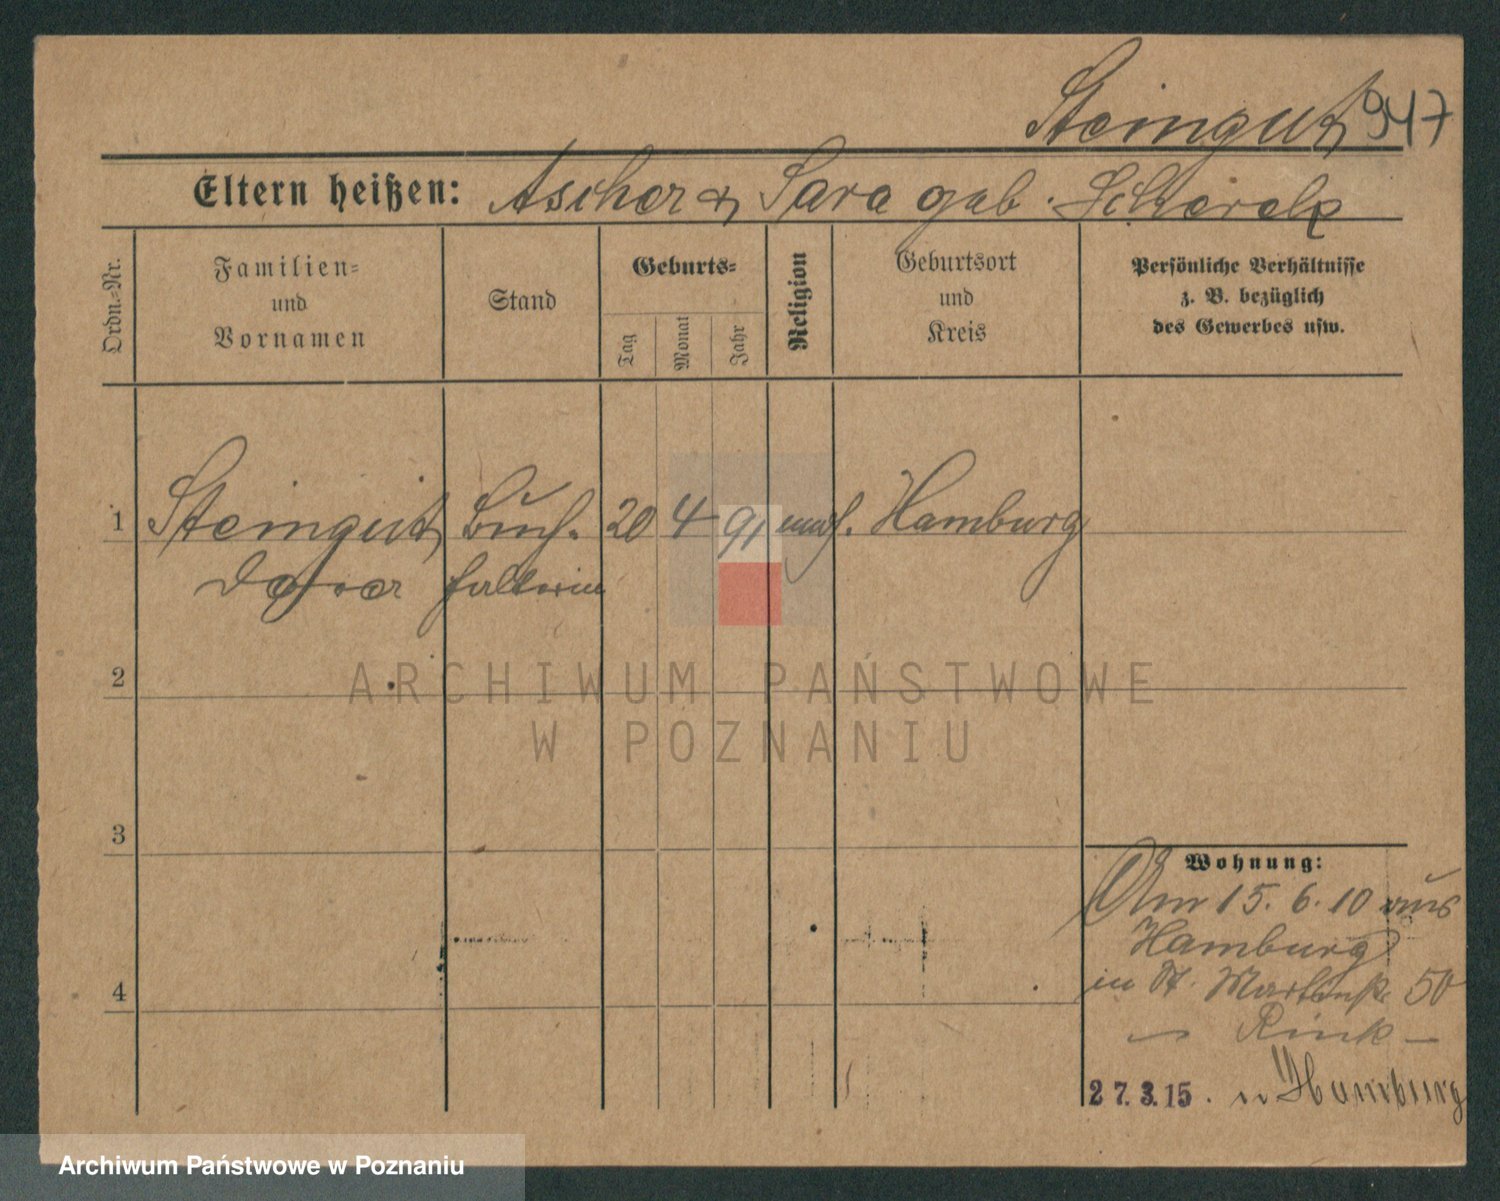 Steingut 947
Eltern heißen: Ascher & Sara geb.
Ordn.-Nr.
Familien-
und
Vornamen
Stand
Geburts-
Tag
Monat
Jahr
Religion
Geburtsort
und
Kreis
Persönliche Verhältnisse
z. B. bezüglich
des Gewerbes usw.
1 Steingut Buch- 20 4 91 mos. Hamburg
halterin
2
3
4
Wohnung:
Am 15. 6. 10 aus
Hamburg
in St. Martinstr. 50
— Rink —
27.3.15. n Hamburg
ARCHIWUM PAŃSTWOWE
W POZNANIU
Archiwum Państwowe w Poznaniu